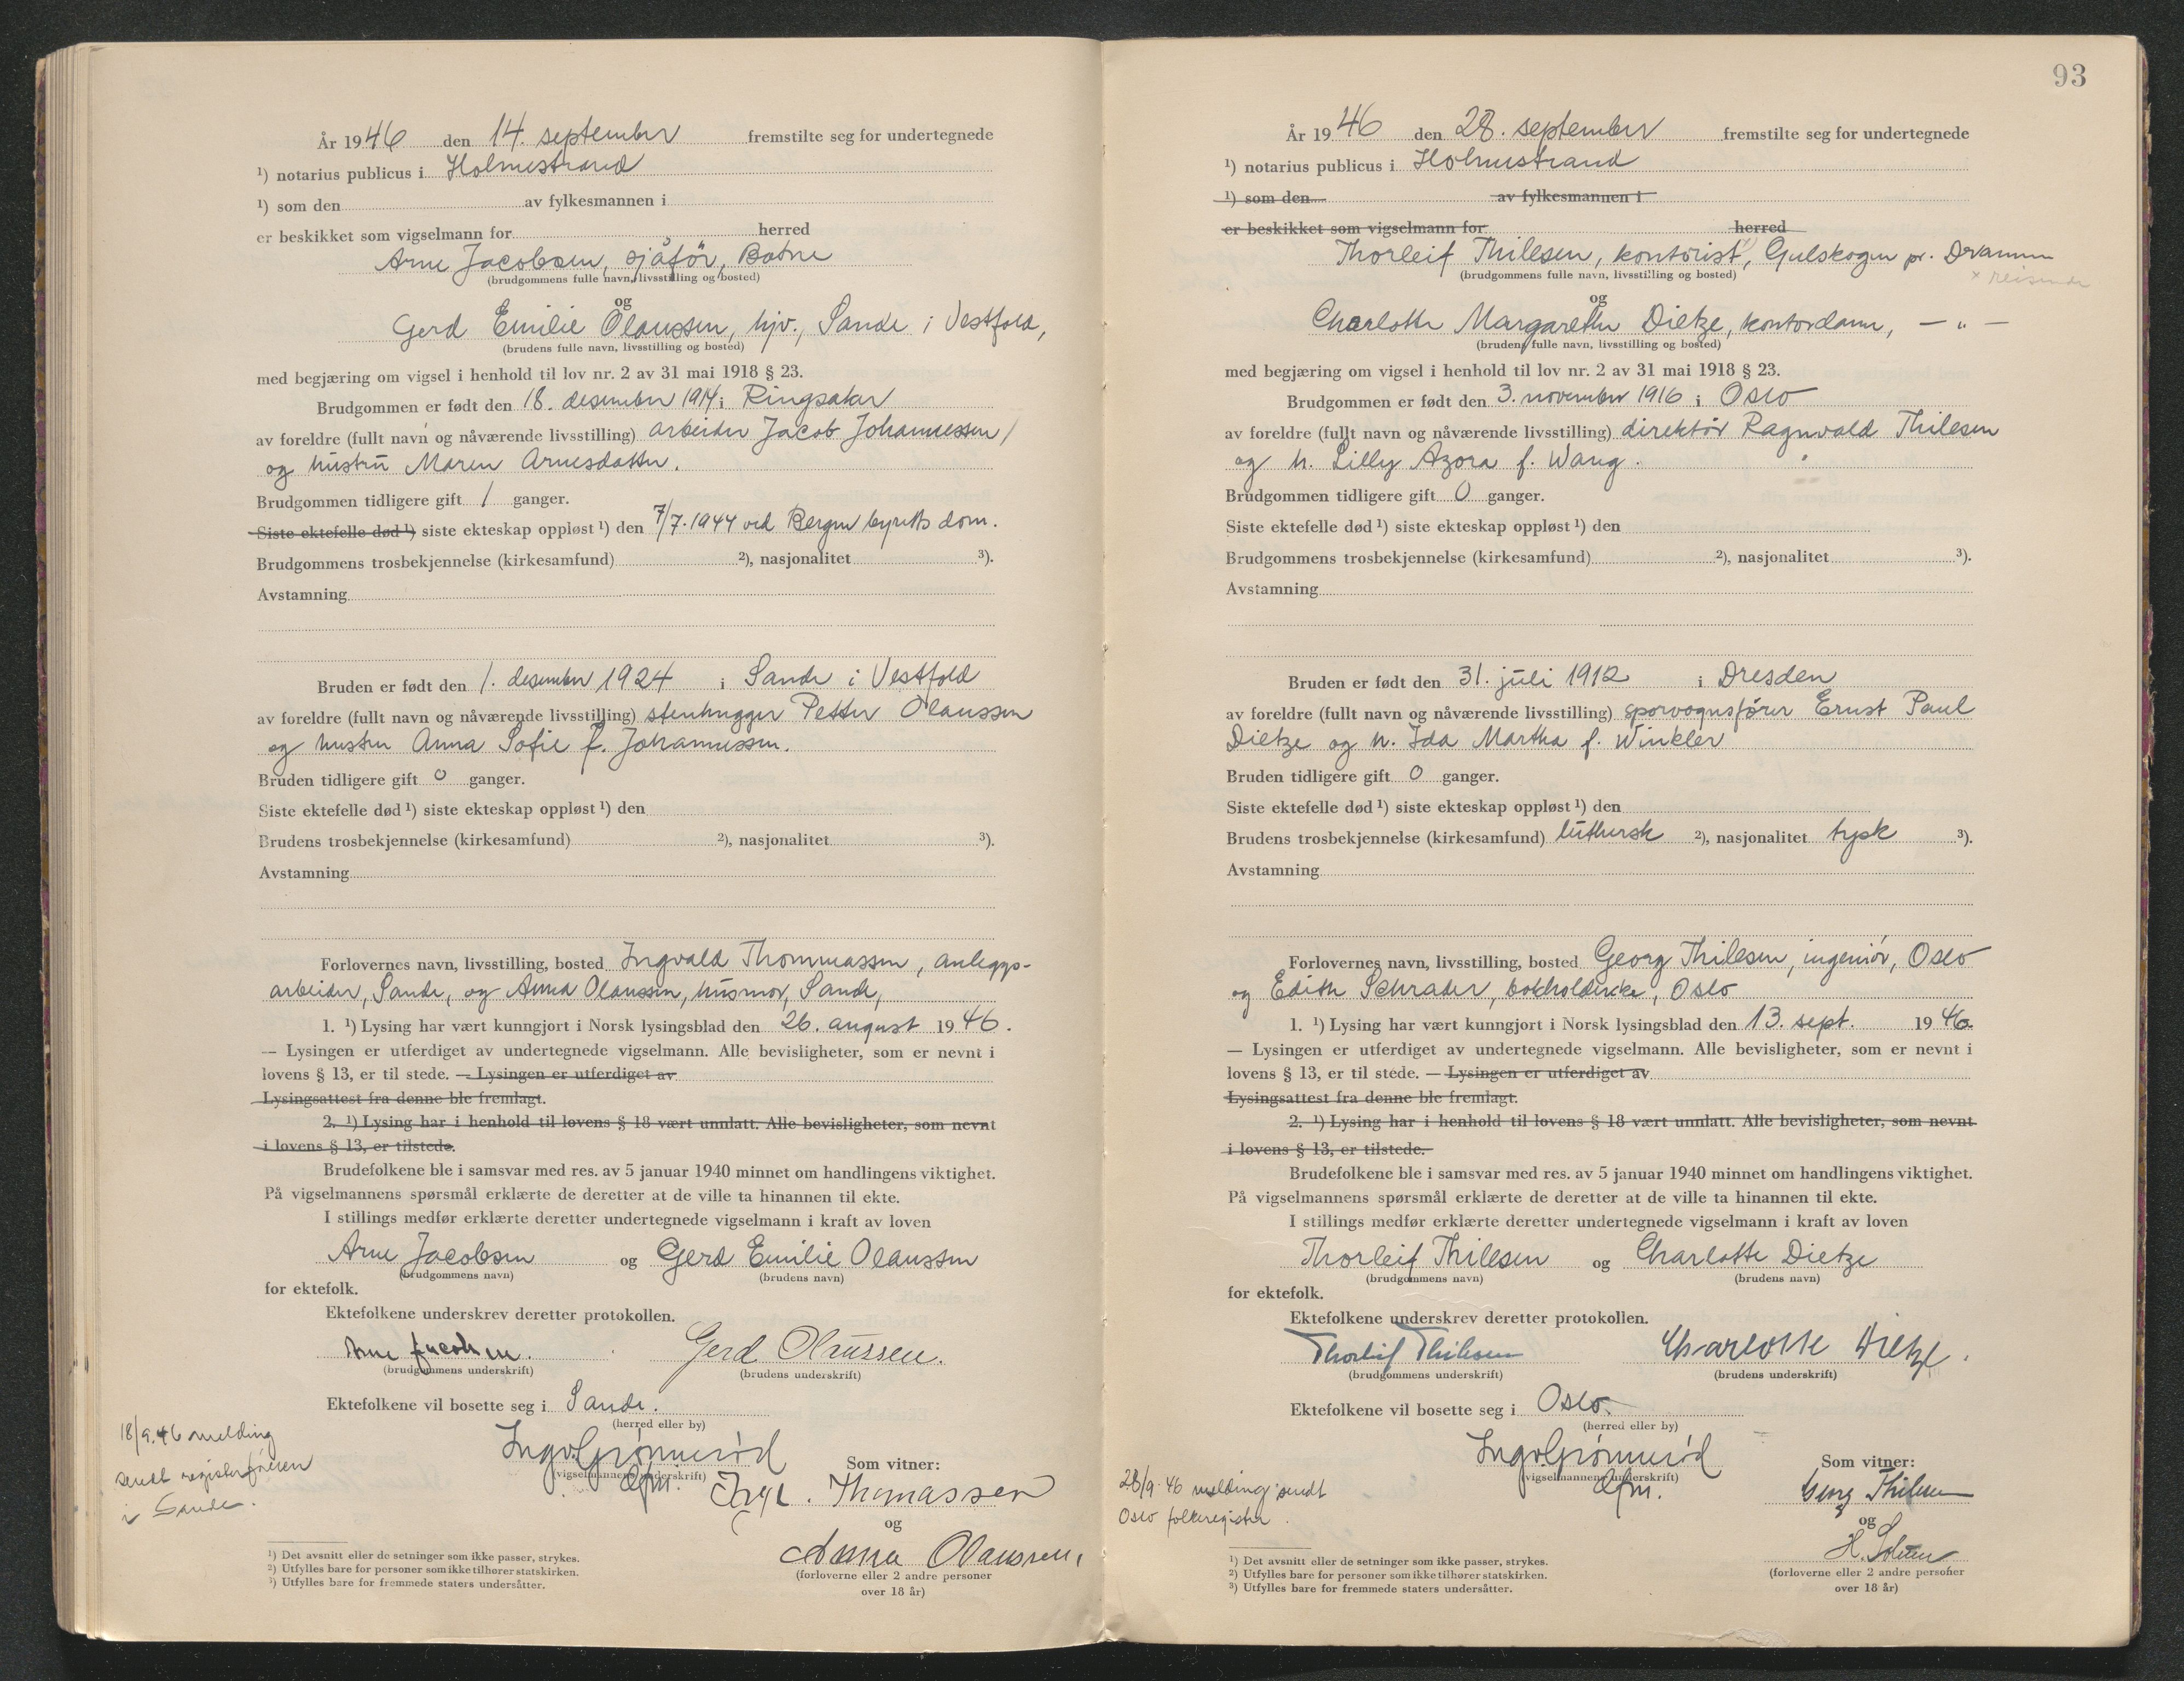 År 1946 den 14. september fremstilte seg for undertegnede
¹) notarius publicus i Holmestrand
¹) som den av fylkesmannen i
er beskikket som vigselmann for herred
Arne Jacobsen, sjåför, Botne
(brudgommens fulle navn, livsstilling og bosted)
og
Gerd Emilie Olaussen, hjv., Sande i Vestfold,
(brudens fulle navn, livsstilling og bosted)
med begjæring om vigsel i henhold til lov nr. 2 av 31 mai 1918 § 23.
Brudgommen er født den 18. desember 1914 i Ringsaker
av foreldre (fullt navn og nåværende livsstilling) arbeider Jacob Johannessen
og hustru Maren Arnesdatter.
Brudgommen tidligere gift 1 ganger.
Siste ektefelle død ¹) siste ekteskap oppløst ¹) den 7/7.1944 ved Bergen byretts dom.
Brudgommens trosbekjennelse (kirkesamfund) ²), nasjonalitet ³).
Avstamning
Bruden er født den 1. desember 1924 i Sande i Vestfold
av foreldre (fullt navn og nåværende livsstilling) stenhugger Petter Olaussen
og hustru Anna Sofie f. Johannessen.
Bruden tidligere gift 0 ganger.
Siste ektefelle død ¹) siste ekteskap oppløst ¹) den
Brudens trosbekjennelse (kirkesamfund) ²), nasjonalitet ³).
Avstamning
Forlovernes navn, livsstilling, bosted Ingvald Thommassen, anleggs-
arbeider, Sande, og Anna Olaussen, husmor, Sande,
1. ¹) Lysing har vært kunngjort i Norsk lysingsblad den 26. august 1946.
— Lysingen er utferdiget av undertegnede vigselmann. Alle bevisligheter, som er nevnt i
lovens § 13, er til stede. — Lysingen er utferdiget av
Lysingsattest fra denne ble fremlagt.
2. ¹) Lysing har i henhold til lovens § 18 vært unnlatt. Alle bevisligheter, som nevnt
i lovens § 13, er tilstede.
Brudefolkene ble i samsvar med res. av 5 januar 1940 minnet om handlingens viktighet.
På vigselmannens spørsmål erklærte de deretter at de ville ta hinannen til ekte.
I stillings medfør erklærte deretter undertegnede vigselmann i kraft av loven
Arne Jacobsen og Gerd Emilie Olaussen
(brudgommens navn) (brudens navn)
for ektefolk.
Ektefolkene underskrev deretter protokollen.
Arne Jacobsen. Gerd Olaussen.
(brudgommens underskrift) (brudens underskrift)
Ektefolkene vil bosette seg i Sande.
(herred eller by)
18/9.46 melding
sendt registerføreren
i Sande.
Ingv. Grønnerød
(vigselmannens underskrift)
Som vitner:
Ingv. Thomassen
og
Anna Olaussen,
(forloverne eller 2 andre personer
over 18 år)
¹) Det avsnitt eller de setninger som ikke passer, strykes.
²) Utfylles bare for personer som ikke tilhører statskirken.
³) Utfylles bare for fremmede staters undersåtter.
93
År 1946 den 28. september fremstilte seg for undertegnede
¹) notarius publicus i Holmestrand
¹) som den av fylkesmannen i
er beskikket som vigselmann for herred
Thorleif Thilesen, kontorist, Gulskogen pr. Drammen
× reisende
(brudgommens fulle navn, livsstilling og bosted)
og
Charlotte Margarethe Dietze, kontordame, — " —
(brudens fulle navn, livsstilling og bosted)
med begjæring om vigsel i henhold til lov nr. 2 av 31 mai 1918 § 23.
Brudgommen er født den 3. november 1916 i Oslo
av foreldre (fullt navn og nåværende livsstilling) direktör Ragnvald Thilesen
og h. Lilly Azora f. Wang.
Brudgommen tidligere gift 0 ganger.
Siste ektefelle død ¹) siste ekteskap oppløst ¹) den
Brudgommens trosbekjennelse (kirkesamfund) ²), nasjonalitet ³).
Avstamning
Bruden er født den 31. juli 1912 i Dresden
av foreldre (fullt navn og nåværende livsstilling) sporvognsfører Ernst Paul
Dietze og h. Ida Martha f. Winkler
Bruden tidligere gift 0 ganger.
Siste ektefelle død ¹) siste ekteskap oppløst ¹) den
Brudens trosbekjennelse (kirkesamfund) luthersk ²), nasjonalitet tysk ³).
Avstamning
Forlovernes navn, livsstilling, bosted Georg Thilesen, ingeniör, Oslo
og Edith Schrader, bokholderske, Oslo
1. ¹) Lysing har vært kunngjort i Norsk lysingsblad den 13. sept. 1946.
— Lysingen er utferdiget av undertegnede vigselmann. Alle bevisligheter, som er nevnt i
lovens § 13, er til stede. — Lysingen er utferdiget av
Lysingsattest fra denne ble fremlagt.
2. ¹) Lysing har i henhold til lovens § 18 vært unnlatt. Alle bevisligheter, som nevnt
i lovens § 13, er tilstede.
Brudefolkene ble i samsvar med res. av 5 januar 1940 minnet om handlingens viktighet.
På vigselmannens spørsmål erklærte de deretter at de ville ta hinannen til ekte.
I stillings medfør erklærte deretter undertegnede vigselmann i kraft av loven
Thorleif Thilesen og Charlotte Dietze
(brudgommens navn) (brudens navn)
for ektefolk.
Ektefolkene underskrev deretter protokollen.
Thorleif Thilesen Charlotte Dietze.
(brudgommens underskrift) (brudens underskrift)
Ektefolkene vil bosette seg i Oslo.
(herred eller by)
28/9.46 melding sendt
Oslo folkeregister.
Ingv. Grønnerød
(vigselmannens underskrift)
Som vitner:
Georg Thilesen
og
(forloverne eller 2 andre personer
over 18 år)
¹) Det avsnitt eller de setninger som ikke passer, strykes.
²) Utfylles bare for personer som ikke tilhører statskirken.
³) Utfylles bare for fremmede staters undersåtter.